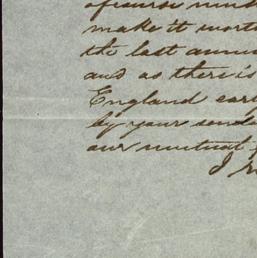 of course
make it wort
the last annu
and as there is
England ear
by your sendi
our mutual f
I r